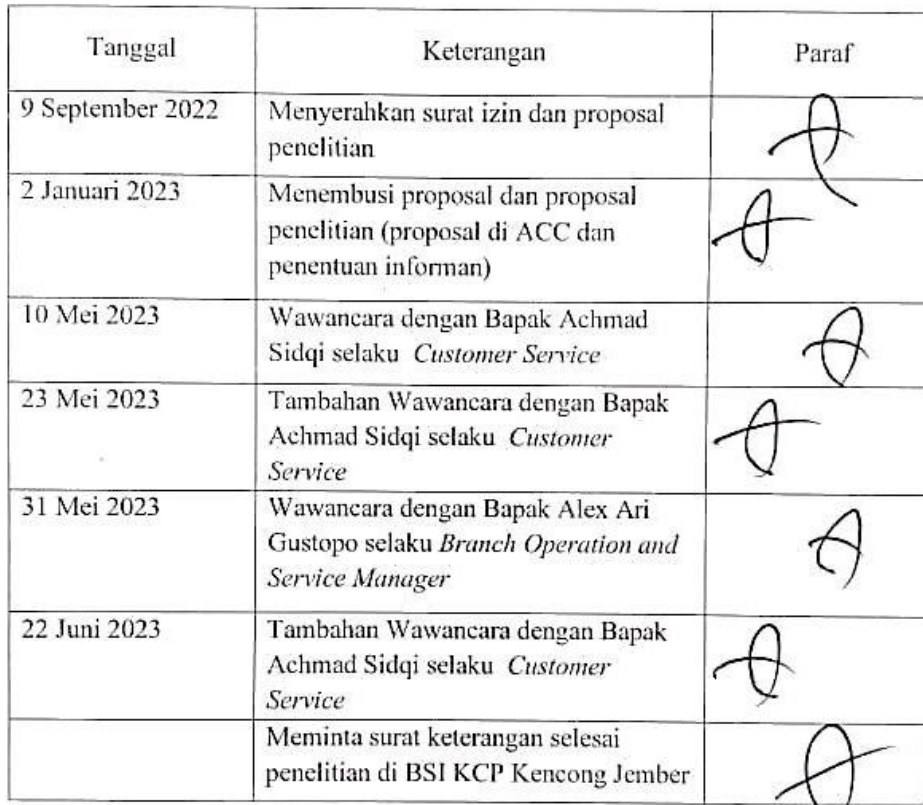 Tanggal Keterangan Paraf
9 September 2022 Menyerahkan surat izin dan proposal
penelitian
2 Januari 2023 Menembusi proposal dan proposal
penelitian (proposal di ACC dan
penentuan informan)
10 Mei 2023 Wawancara dengan Bapak Achmad
Sidqi selaku Customer Service
23 Mei 2023 Tambahan Wawancara dengan Bapak
Achmad Sidqi selaku Customer
Service
31 Mei 2023 Wawancara dengan Bapak Alex Ari
Gustopo selaku Branch Operation and
Service Manager
22 Juni 2023 Tambahan Wawancara dengan Bapak
Achmad Sidqi selaku Customer
Service
Meminta surat keterangan selesai
penelitian di BSI KCP Kencong Jember